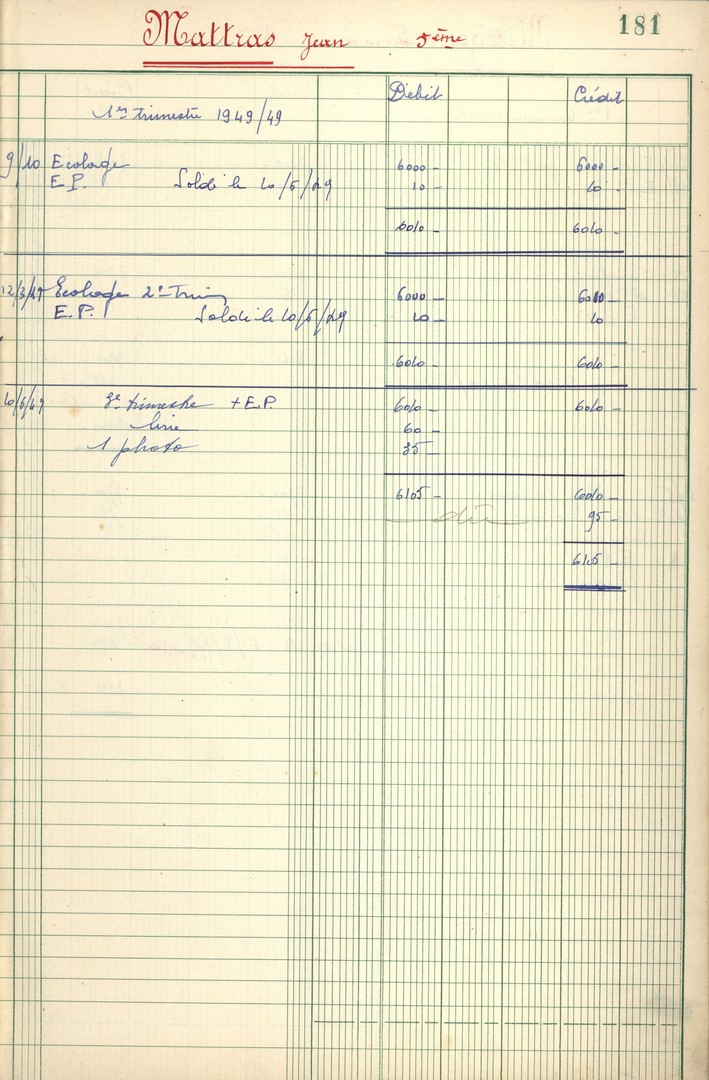 181
Mattras Jean 5ème
Débit Crédit
1er trimestre 1949/49
9/10 Ecolage 6000 - 6000 -
E.P. Soldé le 10/6/49 10 - 10 -
6010 - 6010 -
12/3/49 Ecolage 2e Trim 6000 - 6000 -
E.P. Soldé le 10/6/49 10 - 10
6010 - 6010 -
10/6/49 3e trimestre + E.P. 6010 - 6010 -
livre 60 -
1 photo 35 -
6105 - 6010 -
dû 95 -
6105 -